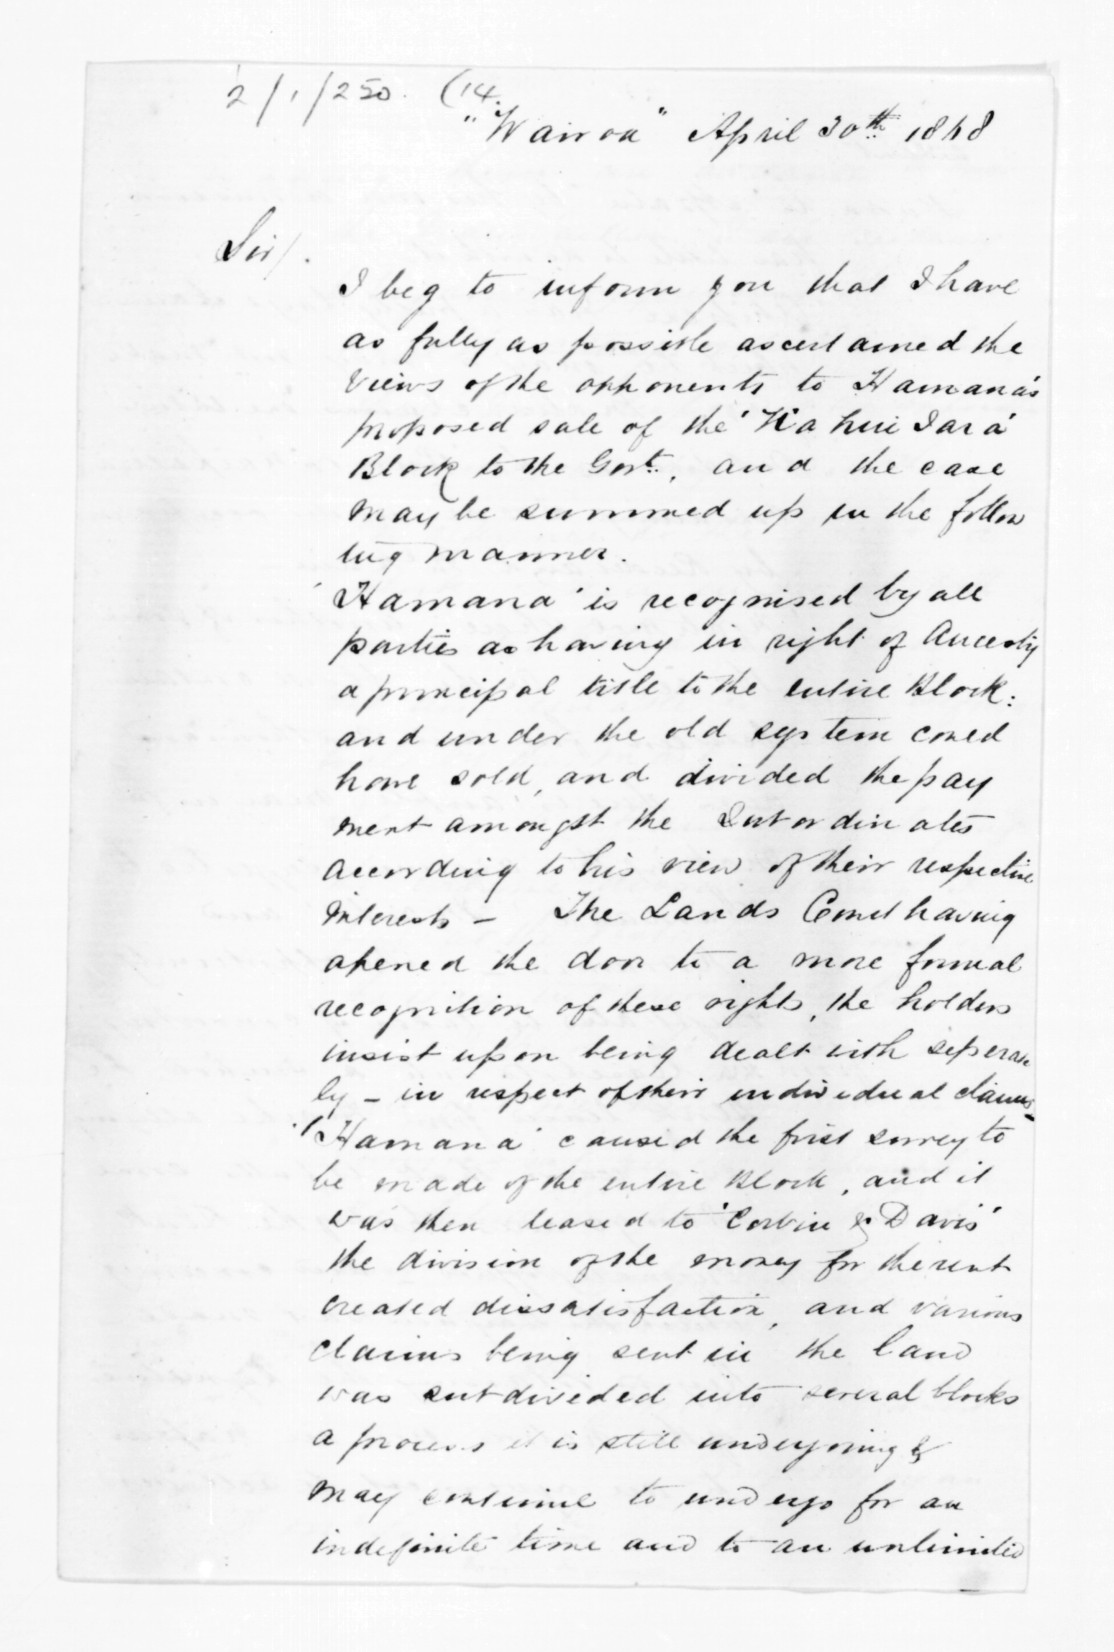 2/1/250. (14.
"Wairoa" April 30th 1868
Sir/.
I beg to inform you that I have
as fully as possible ascertained the
views of the opponents to Hamana's
proposed sale of the
Block to the Govt., and the case
may be summed up in the follow
ing manner.
'Hamana' is recognised by all
parties as having in right of Ancestry
a principal title to the entire Block:
and under the old system could
have sold, and divided the pay
ment amongst the Subordinates
according to his view of their respective
interests – The Lands Court having
opened the door to a more formal
recognition of these rights, the holders
insist upon being dealt with seperate
ly – in respect of their individual claims –
'Hamana' caused the first survey to
be made of the entire Block, and it
was then leased to 'Corbin & Davis'
the division of the money for the rent
created dissatisfaction, and various
claims being sent in the land
was subdivided into several blocks
a process it is still undergoing &
may continue to undergo for an
indefinite time and to an unlimited